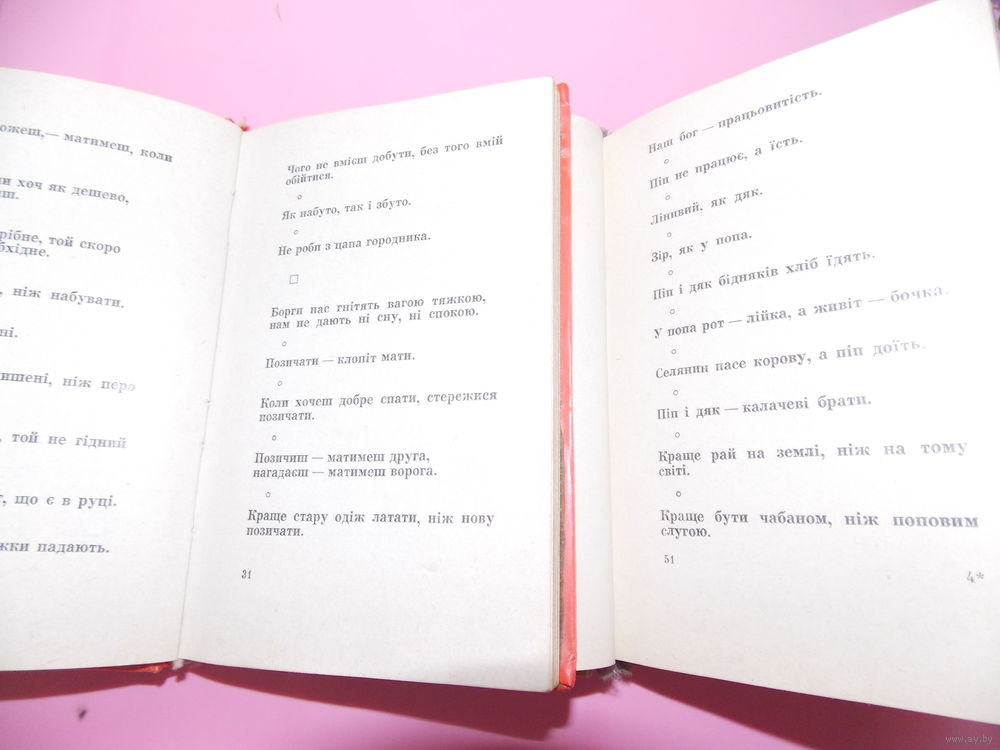 матимеш, коли
хоч як дешево,
той скоро
ніж набувати.
ніж перо
той не гідний
що є в руці.
падають.
Чого не вмієш добути, без того вмій
обійтися.
Як набуто, так і збуто.
Не роби з цапа городника.
Борги нас гнітять вагою тяжкою,
нам не дають ні сну, ні спокою.
Позичати — клопіт мати.
Коли хочеш добре спати, стережися
позичати.
Позичиш — матимеш друга,
нагадаєш — матимеш ворога.
Краще стару одіж латати, ніж нову
позичати.
31
Наш бог — працьовитість.
Піп не працює, а їсть.
Лінивий, як дяк.
Зір, як у попа.
Піп і дяк бідняків хліб їдять.
У попа рот — лійка, а живіт — бочка.
Селянин пасе корову, а піп доїть.
Піп і дяк — калачеві брати.
Краще рай на землі, ніж на тому
світі.
Краще бути чабаном, ніж поповим
слугою.
51
4*
www.ay.by